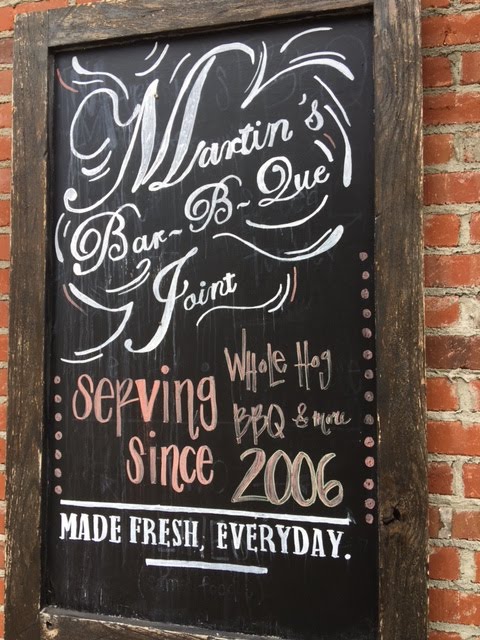 Martin's
Bar-B-Que
Joint
Serving
Since
Whole Hog
BBQ & more
2006
MADE FRESH, EVERYDAY.